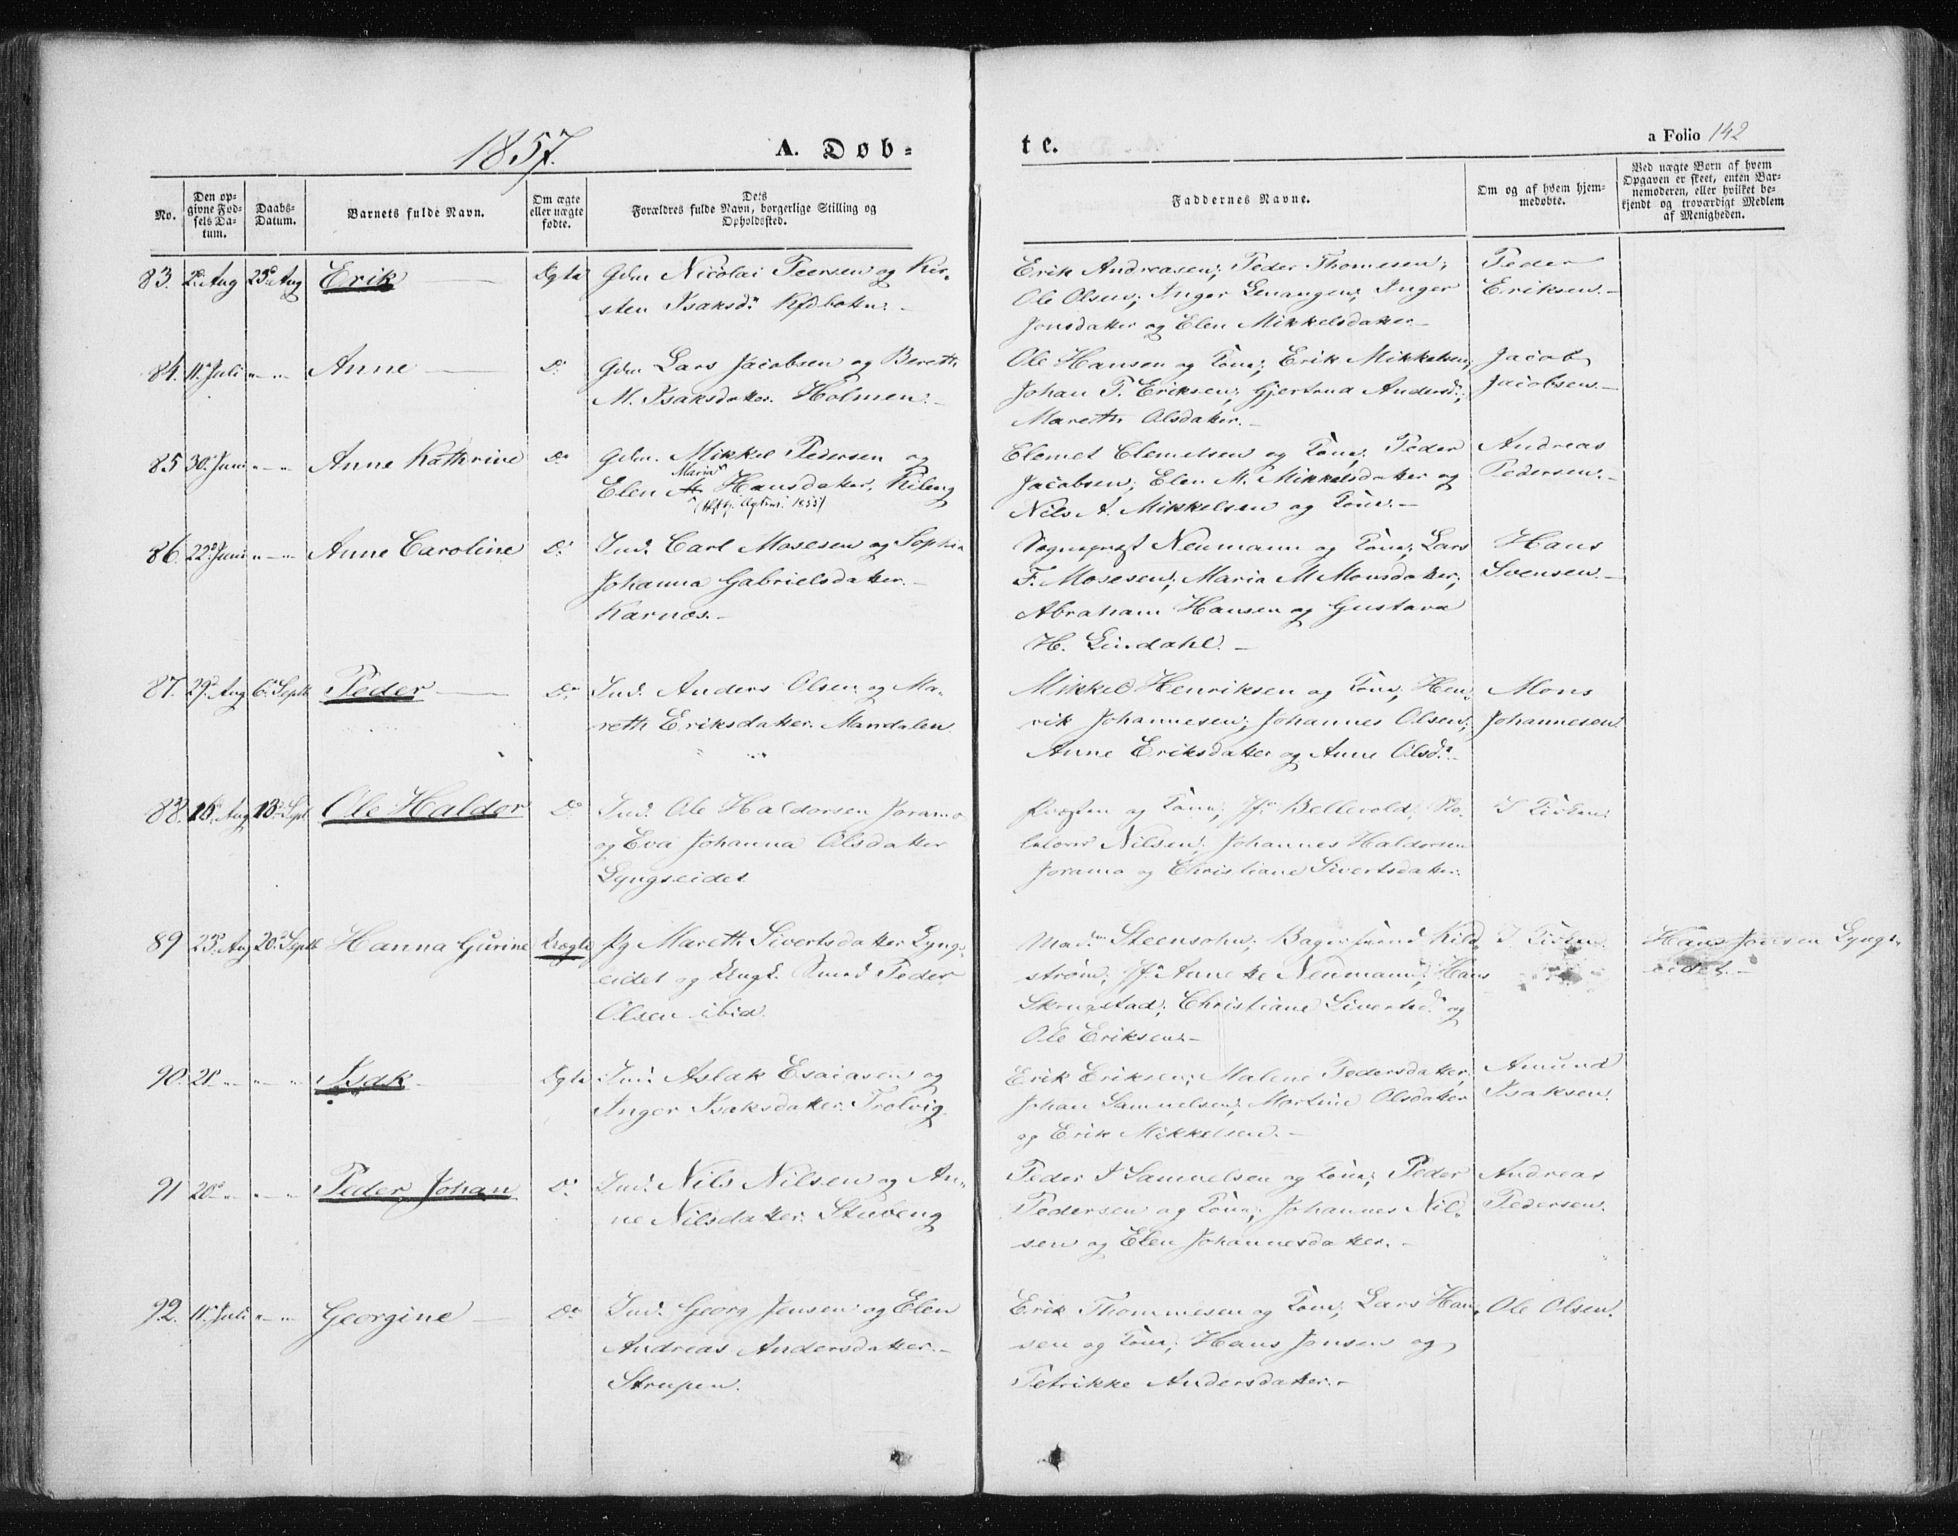 1857.
A. Døb=
te.
a Folio 142
No.
Den op-
givne Fød-
sels Da-
tum.
Daabs-
Datum.
Barnets fulde Navn.
Om ægte
eller uægte
fødte.
Dets
Forældres fulde Navn, borgerlige Stilling og
Opholdssted.
Faddernes Navne.
Om og af hvem hjem-
medøbte.
Ved uægte Børn af hvem
Opgaven er skeet, enten Bar-
nemoderen, eller hvilket be-
kjendt og troværdigt Medlem
af Menigheden.
83. 2d Aug 23d Aug Erik Ægte Gdm Nicolai Peersen og Kir-
sten Isaksdr
Erik Andreasen; Peder Thomesen;
Ole Olsen; Inger Lenangen; Inger
Jonsdatter og Elen Mikkelsdatter
Peder
Eriksen.
84. 11. Juli " " Anne Do Gdm Lars Jacobsen og Bereth
M. Isaksdatter. Holmen.
Ole Hansen og Kone; Erik Mikkelsen;
Johan P. Eriksen; Gjertrud Andersdr;
Mareth Olsdatter.
Jacob
Jacobsen.
85 30. Juni " " Anne Kathrine Do Gdm. Mikkel Pedersen og
Maria
Elen M. Hansdatter. Kileng
1855
Clemet Clemetsen og Kone; Peder
Jacobsen; Elen M. Mikkelsdatter og
Nils A. Mikkelsen og Kone.
Andreas
Pedersen.
86. 22d Juni " " Anne Caroline Do Ind. Carl Mosesen og Sophia
Johanna Gabrielsdatter.
Karnes.
Sognepræst Neumann og Kone; Lars
F. Mosesen; Maria M Monsdatter;
Abraham Hansen og Gustava
H. Lindahl.
Hans
Svensen.
87. 29d Aug 6. Septb Peder Do Ind. Anders Olsen og Ma-
reth Eriksdatter. Mandalen
Mikkel Henriksen og Kone; Hen-
rik Johannesen; Johannes Olsen;
Anne Eriksdatter og Anne Olsdr
Mons
Johannesen.
88. 16. Aug 13. Sept Ole Haldor Do Ind. Ole Haldorsen Joramo
og Eva Johanna Olsdatter
Lyngseidet
Præsten og Kone; Jfr Bellevold;
Nilsen; Johannes Haldorsen
Joramo og Christiane Sivertsdatter.
I Kirken.
89 23d Aug 20d Septb Hanna Gurine Uægte Pg Mareth Sivertsdatter Lyngs-
eidet og Ungk. Smed Peder
Olsen ibid.
Madm Steensohn; Bager Kild-
strøm; Jfr Anne Neumann; Hans
Skrugstad; Christiane Sivertsdr og
Ole Eriksen.
I Kirken.
Hans Jonsen Lyngs-
eidet.
90. 21 " " " Isak Ægte Ind. Aslak Esaiasen og
Inger Isaksdatter. Trolvig.
Erik Eriksen; Malene Pedersdatter;
Johan Samuelsen; Martine Olsdatter
og Erik Mikkelsen.
Amund
Isaksen.
91 20d " " " Peder Johan Do Ind. Nils Nilsen og An-
ne Nilsdatter. Stuveng
Peder I Samuelsen og Kone; Peder
Pedersen og Kone; Johannes Nil-
sen og Elen Johannesdatter.
Andreas
Pedersen.
92. 11. Juli " " Georgine Do Ind. Georg Jensen og Elen
Andreas Andersdatter.
Strupen.
Erik Thommesen og Kone; Lars Han-
sen og Kone; Hans Jonsen og
Petrikke Andersdatter.
Ole Olsen.